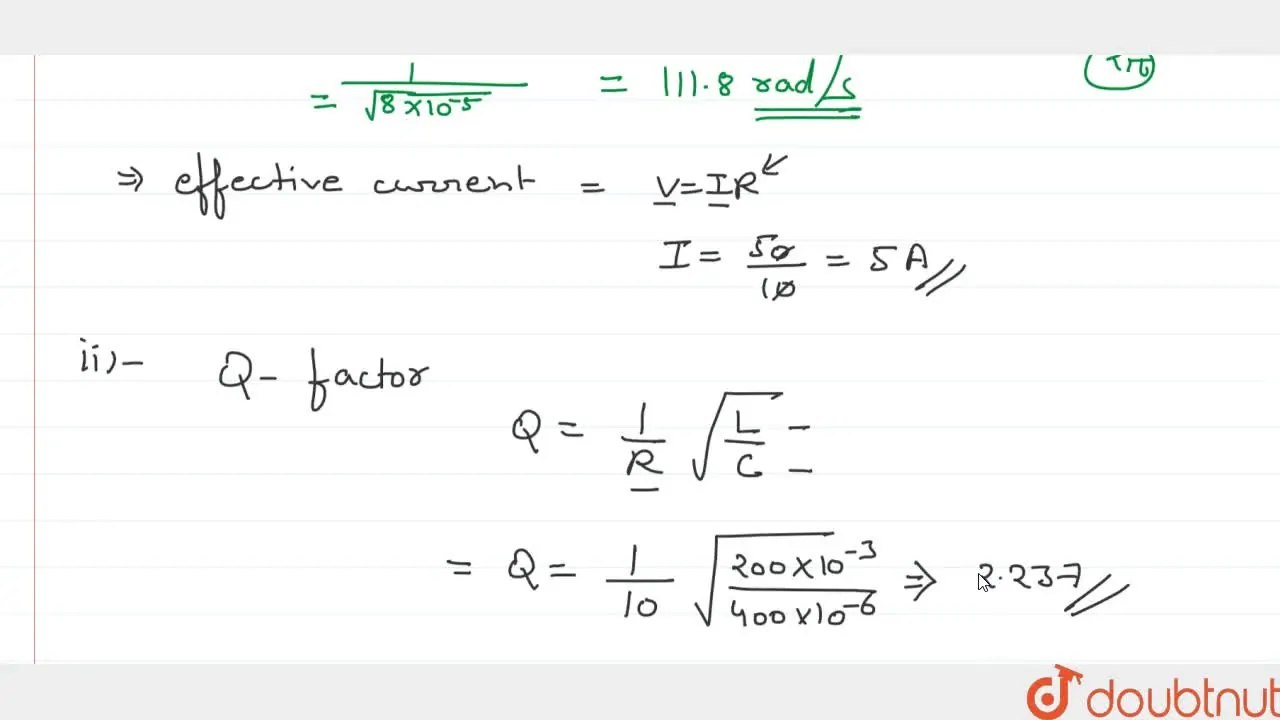 = 1/√(8×10⁻⁵) = 111.8 rad/s
⇒ effective current = V=IR
I = 50/10 = 5A
ii)- Q- factor
Q = 1/R √(L/C)
= Q = 1/10 √(200×10⁻³/400×10⁻⁶) ⇒ 2.237
doubtnut